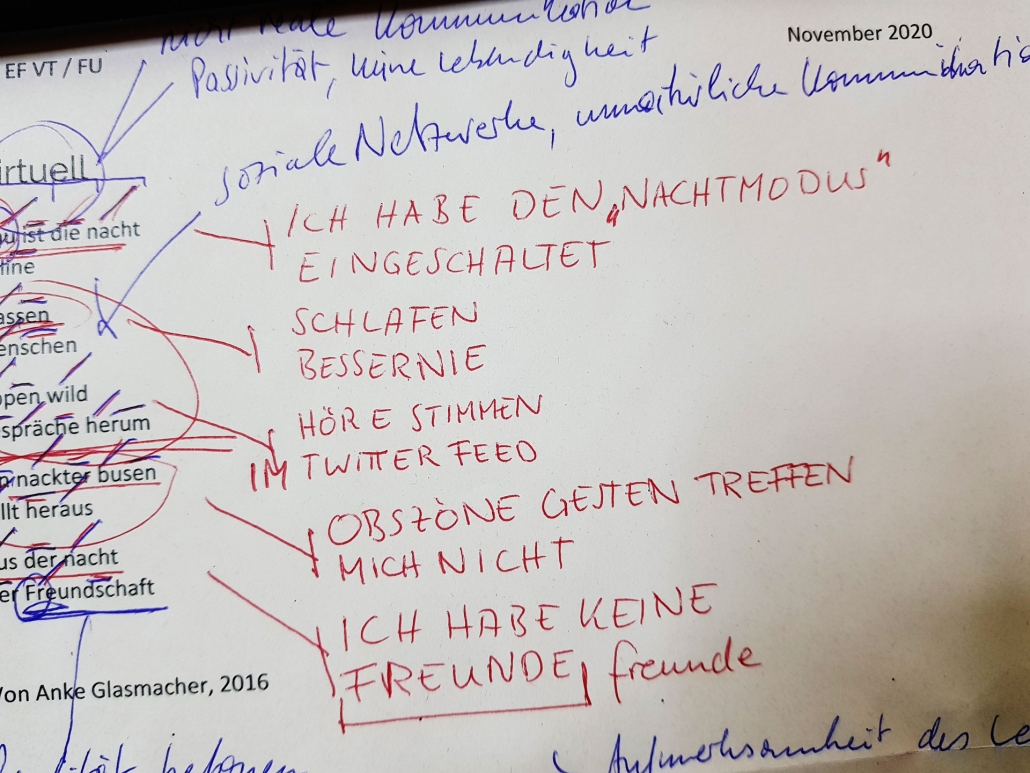 nicht reale Kommunikation
November 2020
EF VT / FU
Passivität, keine Lebendigkeit
soziale Netzwerke, unnatürliche Kommunikatio
irtuell
ICH HABE DEN „NACHTMODUS"
u ist die nacht
EINGESCHALTET
line
assen
SCHLAFEN
enschen
BESSERNIE
ppen wild
HÖRE STIMMEN
spräche herum
IM TWITTER FEED
nackter busen
OBSZÖNE GESTEN TREFFEN
llt heraus
MICH NICHT
us der nacht
er Freundschaft
ICH HABE KEINE
FREUNDE, freunde
Von Anke Glasmacher, 2016
Aufmerksamkeit des Le
betonen